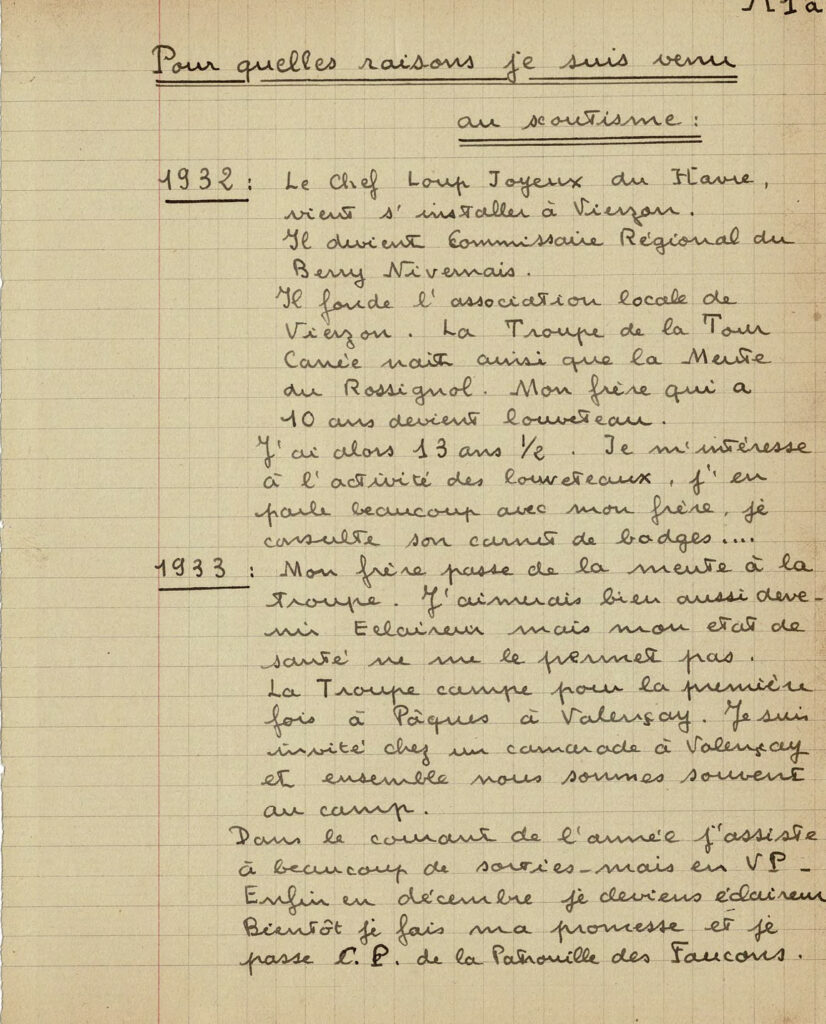 A1a
Pour quelles raisons je suis venu
au scoutisme :
1932 : Le Chef Loup Joyeux du Havre,
vient s'installer à Vierzon.
Il devient Commissaire Régional du
Berry Nivernais.
Il fonde l'association locale de
Vierzon. La Troupe de la Tour
Carrée naît ainsi que la Meute
du Rossignol. Mon frère qui a
10 ans devient louveteau.
J'ai alors 13 ans 1/2. Je m'intéresse
à l'activité des louveteaux, j'en
parle beaucoup avec mon frère, je
consulte son carnet de badges....
1933 : Mon frère passe de la meute à la
troupe. J'aimerais bien aussi deve-
nir Eclaireur mais mon etat de
santé ne me le permet pas.
La Troupe campe pour la première
fois à Pâques à Valençay. Je suis
invité chez un camarade à Valençay
et ensemble nous sommes souvent
au camp.
Dans le courant de l'année j'assiste
à beaucoup de sorties - mais en VP -
Enfin en décembre je deviens éclaireur
Bientôt je fais ma promesse et je
passe C.P. de la Patrouille des Faucons.